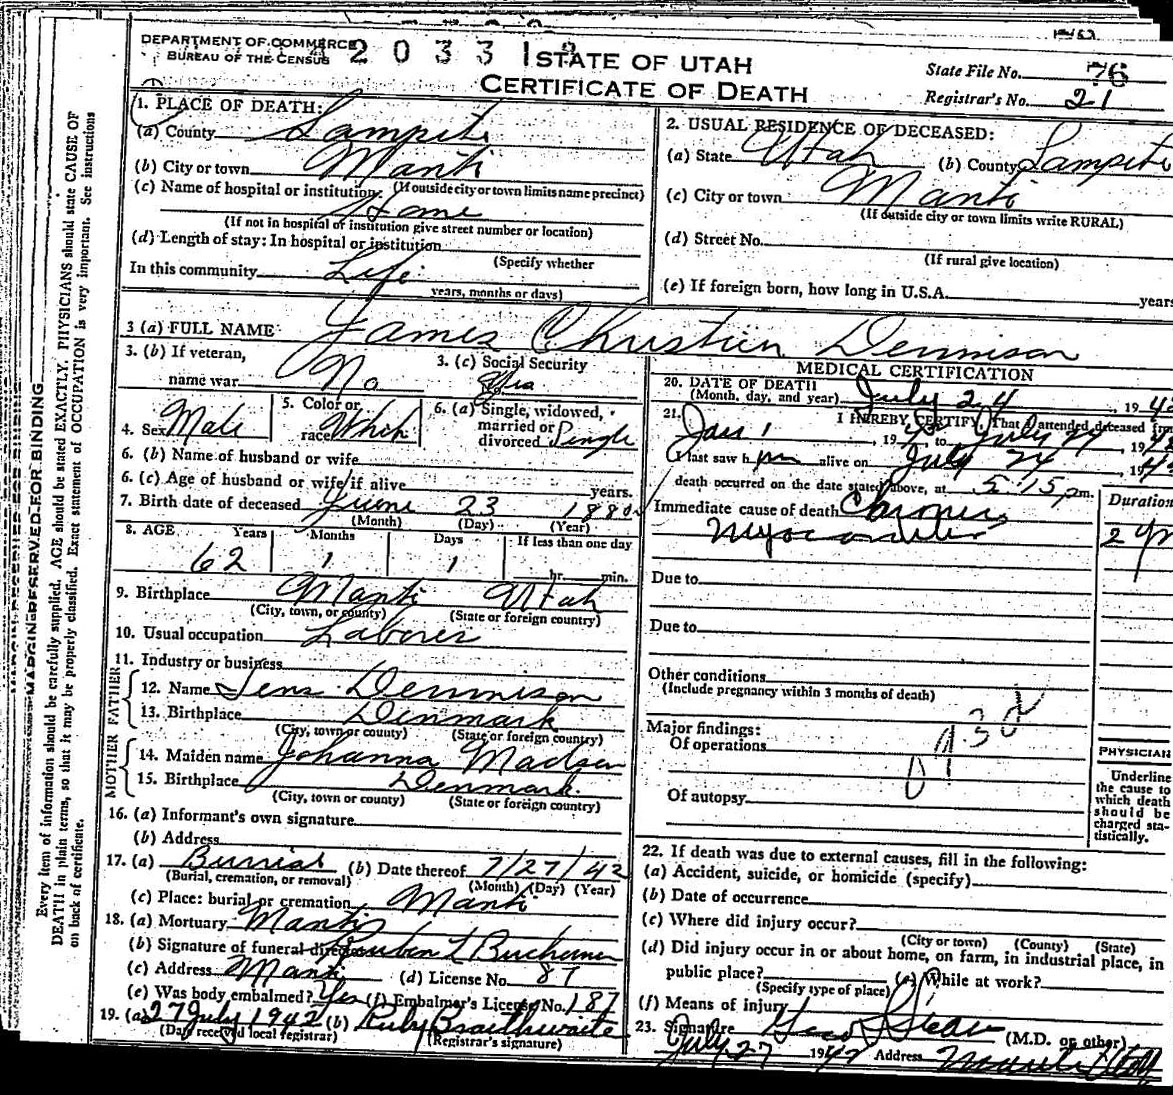 DEPARTMENT OF COMMERCE
BUREAU OF THE CENSUS
2 0 3 3 1
STATE OF UTAH
CERTIFICATE OF DEATH
State File No. 76
Registrar's No. 21
MARGIN RESERVED FOR BINDING
Every item of information should be carefully supplied. AGE should be stated EXACTLY. PHYSICIANS should state CAUSE OF
DEATH in plain terms, so that it may be properly classified. Exact statement of OCCUPATION is very important. See instructions
on back of certificate.
1. PLACE OF DEATH:
(a) County Sanpete
(b) City or town Manti
(If outside city or town limits name precinct)
(c) Name of hospital or institution:
Home
(If not in hospital or institution give street number or location)
(d) Length of stay: In hospital or institution
(Specify whether
In this community Life
years, months or days)
2. USUAL RESIDENCE OF DECEASED:
(a) State Utah (b) County Sanpete
(c) City or town Manti
(If outside city or town limits write RURAL)
(d) Street No.
(If rural give location)
(e) If foreign born, how long in U.S.A. years
3 (a) FULL NAME James Christien Dennison
3. (b) If veteran,
name war No
3. (c) Social Security
No.
4. Sex Male
5. Color or
race White
6. (a) Single, widowed,
married or
divorced Single
6. (b) Name of husband or wife
6. (c) Age of husband or wife if alive years.
7. Birth date of deceased June 23 1880
(Month) (Day) (Year)
8. AGE Years Months Days If less than one day
62 1 1 hr. min.
9. Birthplace Manti Utah
(City, town, or county) (State or foreign country)
10. Usual occupation Laborer
11. Industry or business
FATHER
12. Name Jens Dennison
13. Birthplace Denmark
(City, town or county) (State or foreign country)
MOTHER
14. Maiden name Johanna Madsen
15. Birthplace Denmark.
(City, town or county) (State or foreign country)
16. (a) Informant's own signature
(b) Address
17. (a) Burial (b) Date thereof 7/27/42
(Burial, cremation, or removal) (Month) (Day) (Year)
(c) Place: burial or cremation Manti
18. (a) Mortuary Manti
(b) Signature of funeral director Reuben L
(c) Address Manti (d) License No. 87
(e) Was body embalmed? Yes (f) Embalmer's License No. 187
19. (a) 27 July 1942 (b) Ruby Braithwaite
(Date received local registrar) (Registrar's signature)
MEDICAL CERTIFICATION
20. DATE OF DEATH
(Month, day, and year) July 24, 1942
21. I HEREBY CERTIFY, That I attended deceased from
Jan 1, 19 to July 24, 1942
I last saw h im alive on July 24, 1942
death occurred on the date stated above, at 5:15 pm.
Immediate cause of death Chronic
Myocarditis
Duration
2 yr
Due to
Due to
Other conditions
(Include pregnancy within 3 months of death)
Major findings:
Of operations
Of autopsy
PHYSICIAN
Underline
the cause to
which death
should be
charged sta-
tistically.
22. If death was due to external causes, fill in the following:
(a) Accident, suicide, or homicide (specify)
(b) Date of occurrence
(c) Where did injury occur?
(City or town) (County) (State)
(d) Did injury occur in or about home, on farm, in industrial place, in
public place? (e) While at work?
(Specify type of place)
(f) Means of injury
23. Signature (M.D. or other)
July 27 1942 Address Manti Utah